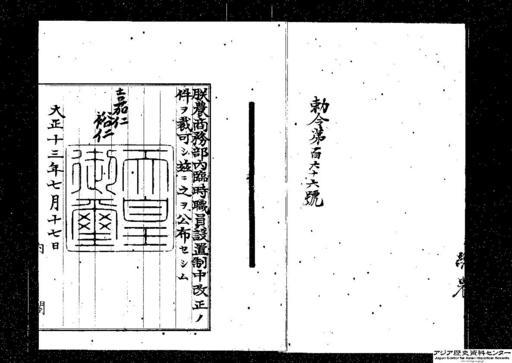 勅令第百六十六號
朕農商務部內臨時職員設置制中改正ノ
件ヲ裁可シ茲ニ之ヲ公布セシム
嘉仁
裕仁
天皇
御璽
大正十三年七月十七日
內閣
アジア歴史資料センター
Japan Center for Asian Historical Records